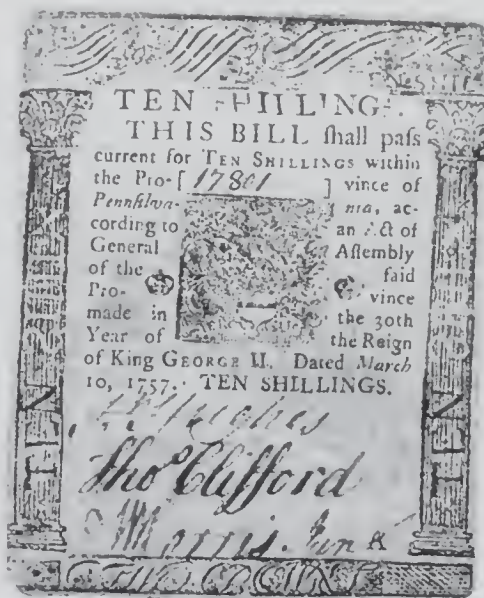 TEN SHILLINGS.
THIS BILL ſhall paſs
current for TEN SHILLINGS within
the Pro- [ 17801 ] vince of
Pennſilva- nia, ac-
cording to an Act of
General Aſſembly
of the ſaid
Pro- vince
made in the 30th
Year of the Reign
of King GEORGE II. Dated March
10, 1757. TEN SHILLINGS.
Hughes
Tho.s Clifford
Morris. Jun.r
TEN
TEN